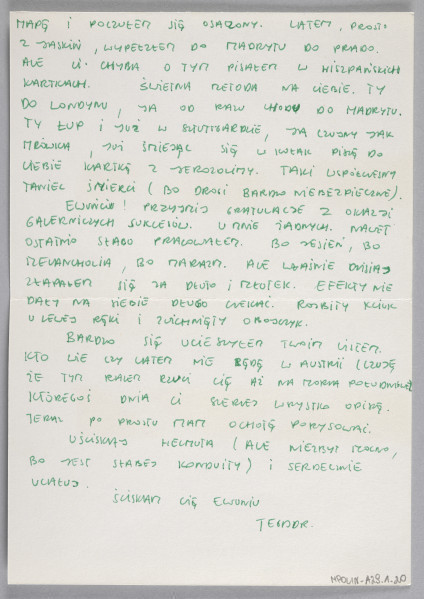 MAPĘ I POCZUŁEM SIĘ OSACZONY. LATEM, PROSTO
Z JASKIŃ, WYPEŁZŁEM DO MADRYTU DO PRADO.
ALE CI CHYBA O TYM PISAŁEM W HISZPAŃSKICH
KARTKACH. ŚWIETNA METODA NA CIEBIE. TY
DO LONDYNU, JA OD RAZU CHODU DO MADRYTU.
TY ŁUP I JUŻ W STUTTGARDZIE, JA CZUJNY JAK
MRÓWKA, JUŻ ŚMIEJĄC SIĘ W KUŁAK PISZĘ DO
CIEBIE KARTKĘ Z JEROZOLIMY. TAKI WSPÓŁCZESNY
TANIEC ŚMIERCI (BO DROGI BARDZO NIEBEZPIECZNE).
EWUNIU! PRZYJMIJ GRATULACJE Z OKAZJI
GALERNICZYCH SUKCESÓW. U MNIE ŻADNYCH. NAWET
OSTATNIO SŁABO PRACOWAŁEM. BO JESIEŃ, BO
MELANCHOLIA, BO MARAZM. ALE WŁAŚNIE DZISIAJ
ZŁAPAŁEM SIĘ ZA DŁUTO I MŁOTEK. EFEKTY NIE
DAŁY NA SIEBIE DŁUGO CZEKAĆ. ROZBITY KCIUK
U LEWEJ RĘKI I ZWICHNIĘTY OBOJCZYK.
BARDZO SIĘ UCIESZYŁEM TWOIM LISTEM.
KTO WIE CZY LATEM NIE BĘDĘ W AUSTRII (CZUJĘ
ŻE TYM RAZEM RZUCI CIĘ AŻ NA MORZA POŁUDNIOWE)
KTÓREGOŚ DNIA CI SZERZEJ WSZYSTKO OPISZĘ.
TERAZ PO PROSTU MAM OCHOTĘ PORYSOWAĆ.
UŚCISKAJ HELMUTA (ALE NIEZBYT MOCNO,
BO JEST SŁABEJ KONDUITY) I SERDECZNIE
UCAŁUJ.
ŚCISKAM CIĘ EWUNIU
TEODOR.
MPOLIN-A29.1.20